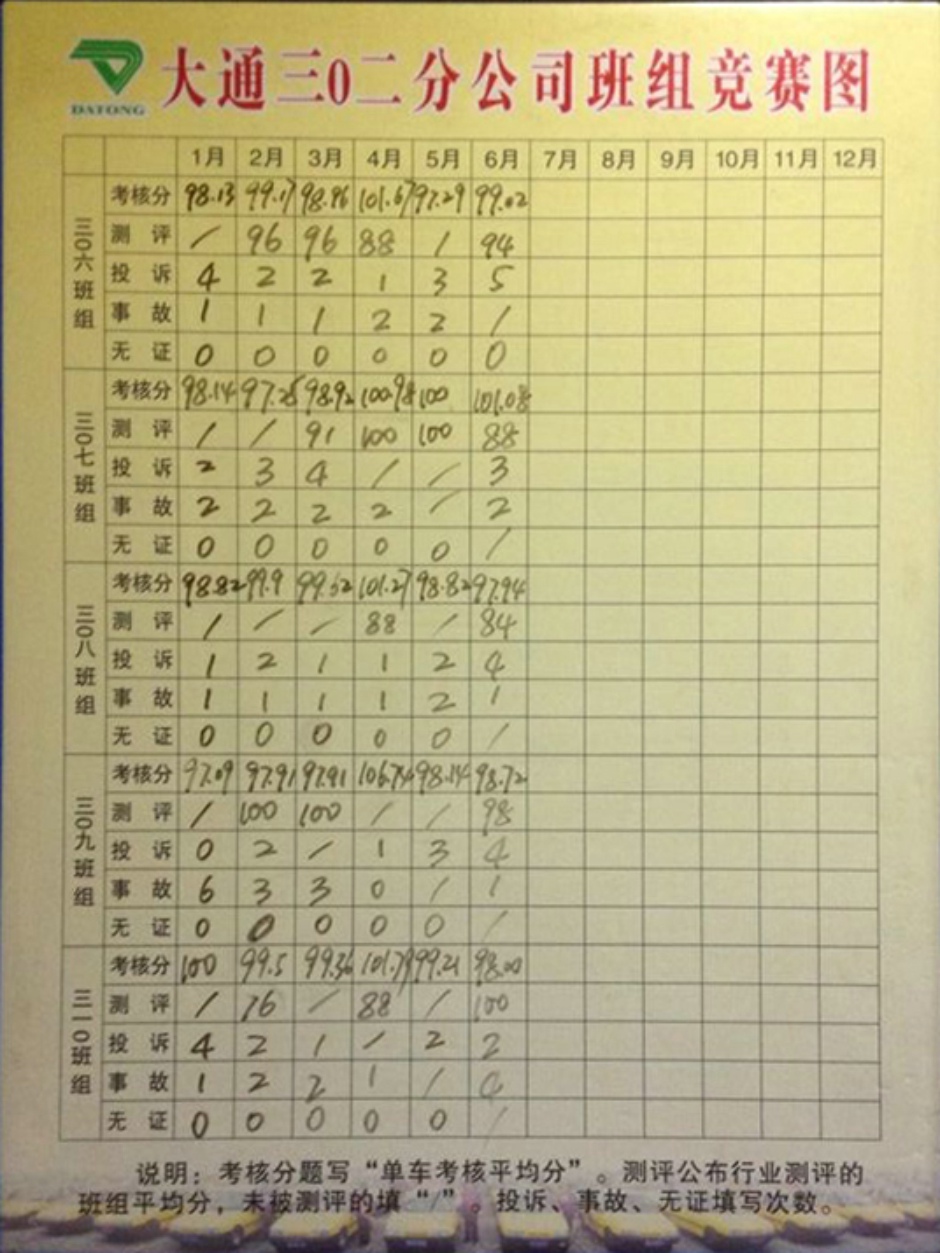 大通三0二分公司班组竞赛图
DATONG
1月 2月 3月 4月 5月 6月 7月 8月 9月 10月 11月 12月
三0六班组
考核分 98.13 99.17 98.96 101.67 97.29 99.02
测评 / 96 96 88 / 94
投诉 4 2 2 1 3 5
事故 1 1 1 2 2 /
无证 0 0 0 0 0 0
三0七班组
考核分 98.14 97.25 98.92 100.98 100 101.08
测评 / / 91 100 100 88
投诉 2 3 4 / / 3
事故 2 2 2 2 / 2
无证 0 0 0 0 0 /
三0八班组
考核分 98.82 99.9 99.52 101.27 98.82 97.94
测评 / / / 88 / 84
投诉 1 2 1 1 2 4
事故 1 1 1 1 2 1
无证 0 0 0 0 0 /
三0九班组
考核分 97.09 97.91 97.91 106.74 98.14 98.72
测评 / 100 100 / / 98
投诉 0 2 / 1 3 4
事故 6 3 3 0 / 1
无证 0 0 0 0 0 /
三一0班组
考核分 100 99.5 99.36 101.79 99.21 98.00
测评 / 76 / 88 / 100
投诉 4 2 1 / 2 2
事故 1 2 2 1 /
无证 0 0 0 0 0 /
说明：考核分题写“单车考核平均分”。测评公布行业测评的
班组平均分，未被测评的填“/”。投诉、事故、无证填写次数。